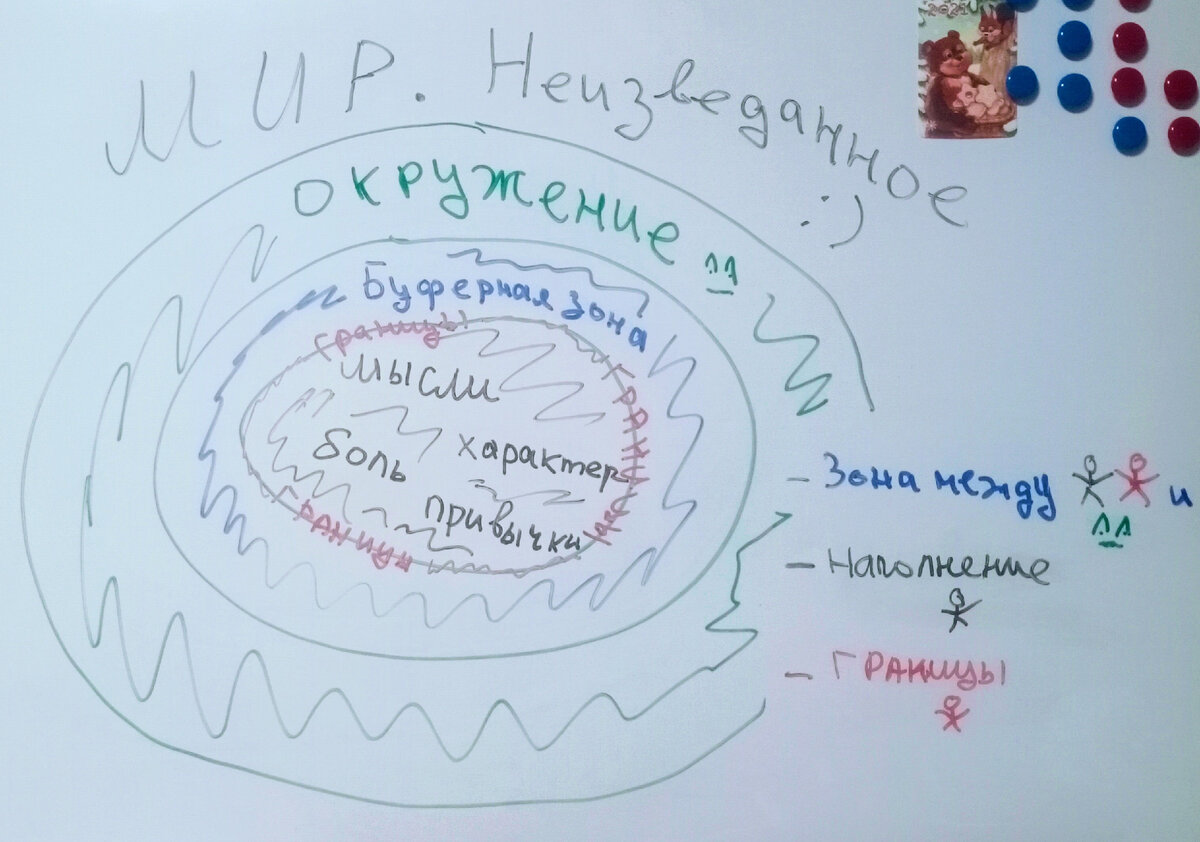 2021
МИР. Неизведанное
:)
окружение ^^
Буферная зона
границы
границы
границы
мысли
боль
характер
привычки
- Зона между и
^^
- Наполнение
- границы